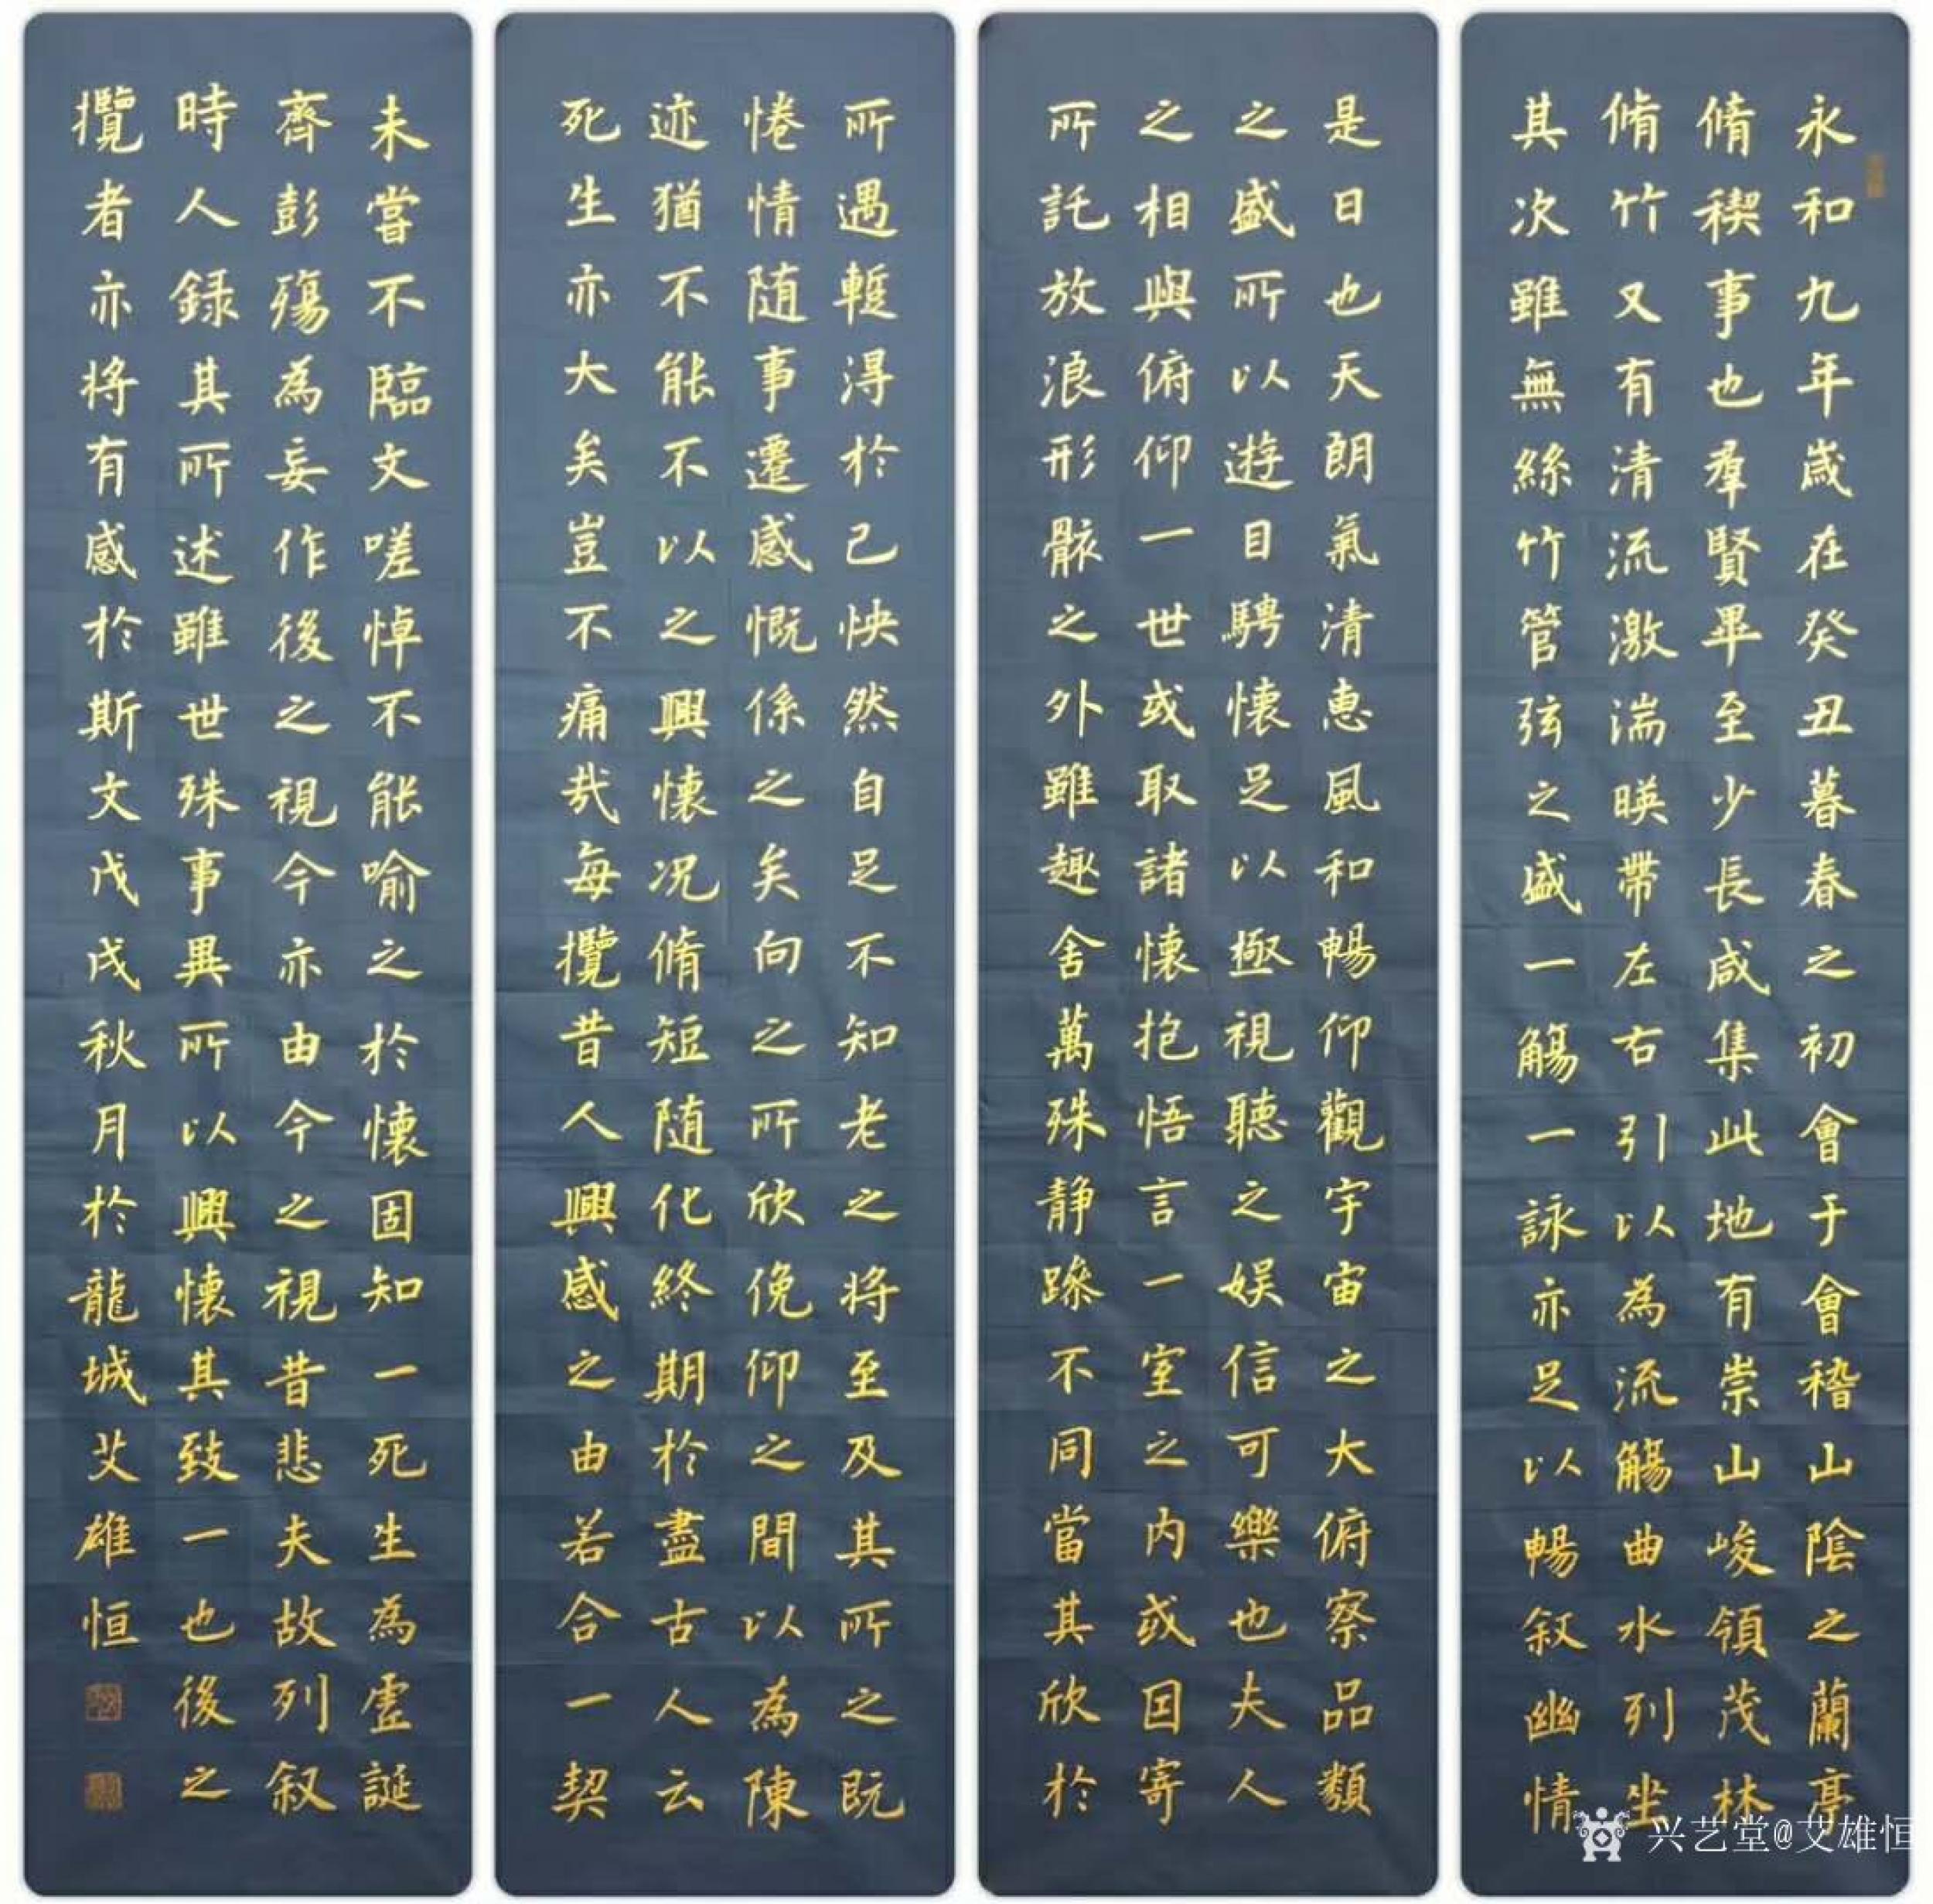 永和九年歲在癸丑暮春之初會于會稽山陰之蘭亭
脩稧事也羣賢畢至少長咸集此地有崇山峻領茂林
脩竹又有清流激湍暎帶左右引以為流觴曲水列坐
其次雖無絲竹管弦之盛一觴一詠亦足以暢叙幽情
是日也天朗氣清惠風和暢仰觀宇宙之大俯察品類
之盛所以遊目騁懷足以極視聽之娱信可樂也夫人
之相與俯仰一世或取諸懷抱悟言一室之内或因寄
所託放浪形骸之外雖趣舍萬殊静躁不同當其欣於
所遇蹔得於己怏然自足不知老之将至及其所之既
惓情随事遷感慨係之矣向之所欣俛仰之間以為陳
迹猶不能不以之興懷况脩短随化終期於盡古人云
死生亦大矣豈不痛哉每攬昔人興感之由若合一契
未嘗不臨文嗟悼不能喻之於懷固知一死生為虚誕
齊彭殤為妄作後之視今亦由今之視昔悲夫故列叙
時人録其所述雖世殊事異所以興懷其致一也後之
攬者亦将有感於斯文戊戌秋月於龍城艾雄恒
兴艺堂@艾雄恒